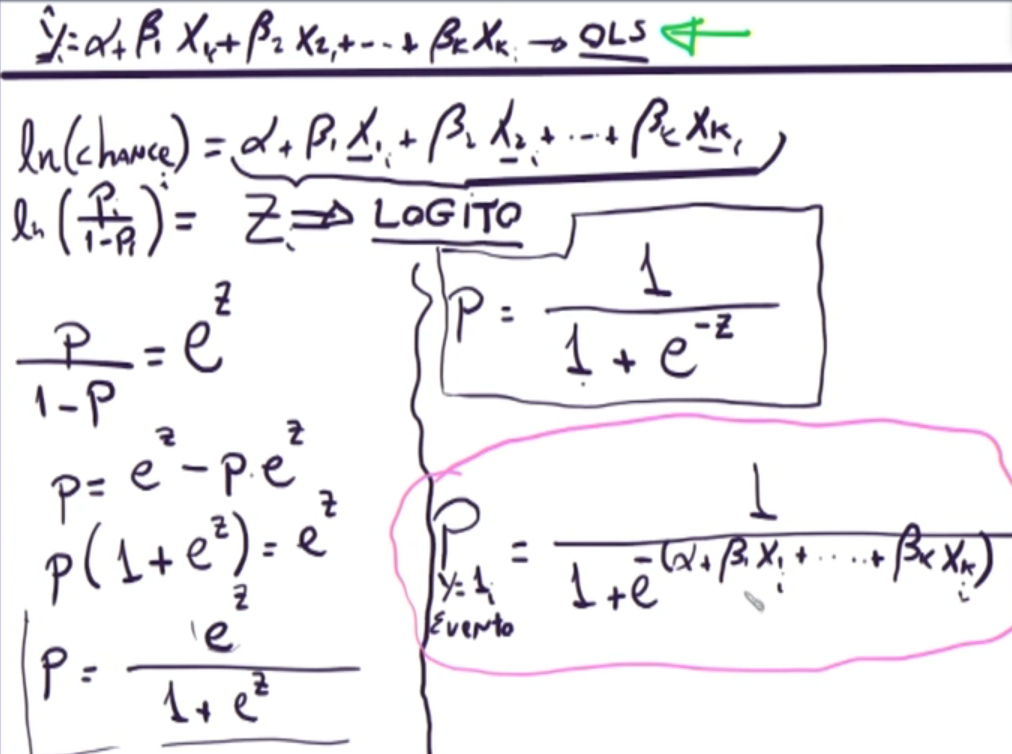 ŷᵢ = α + β₁ X₁ᵢ + β₂ X₂ᵢ + ... + βₖ Xₖᵢ → OLS
ln(chance)ᵢ = α + β₁ X₁ᵢ + β₂ X₂ᵢ + ... + βₖ Xₖᵢ
ln(pᵢ/(1-pᵢ)) = Zᵢ ⇒ LOGITO
p/(1-p) = e^z
p = e^z - p.e^z
p(1 + e^z) = e^z
p = e^z/(1 + e^z)
p = 1/(1 + e^-z)
P y=1ᵢ Evento = 1/(1 + e^-(α + β₁ X₁ᵢ + .... + βₖ Xₖᵢ))